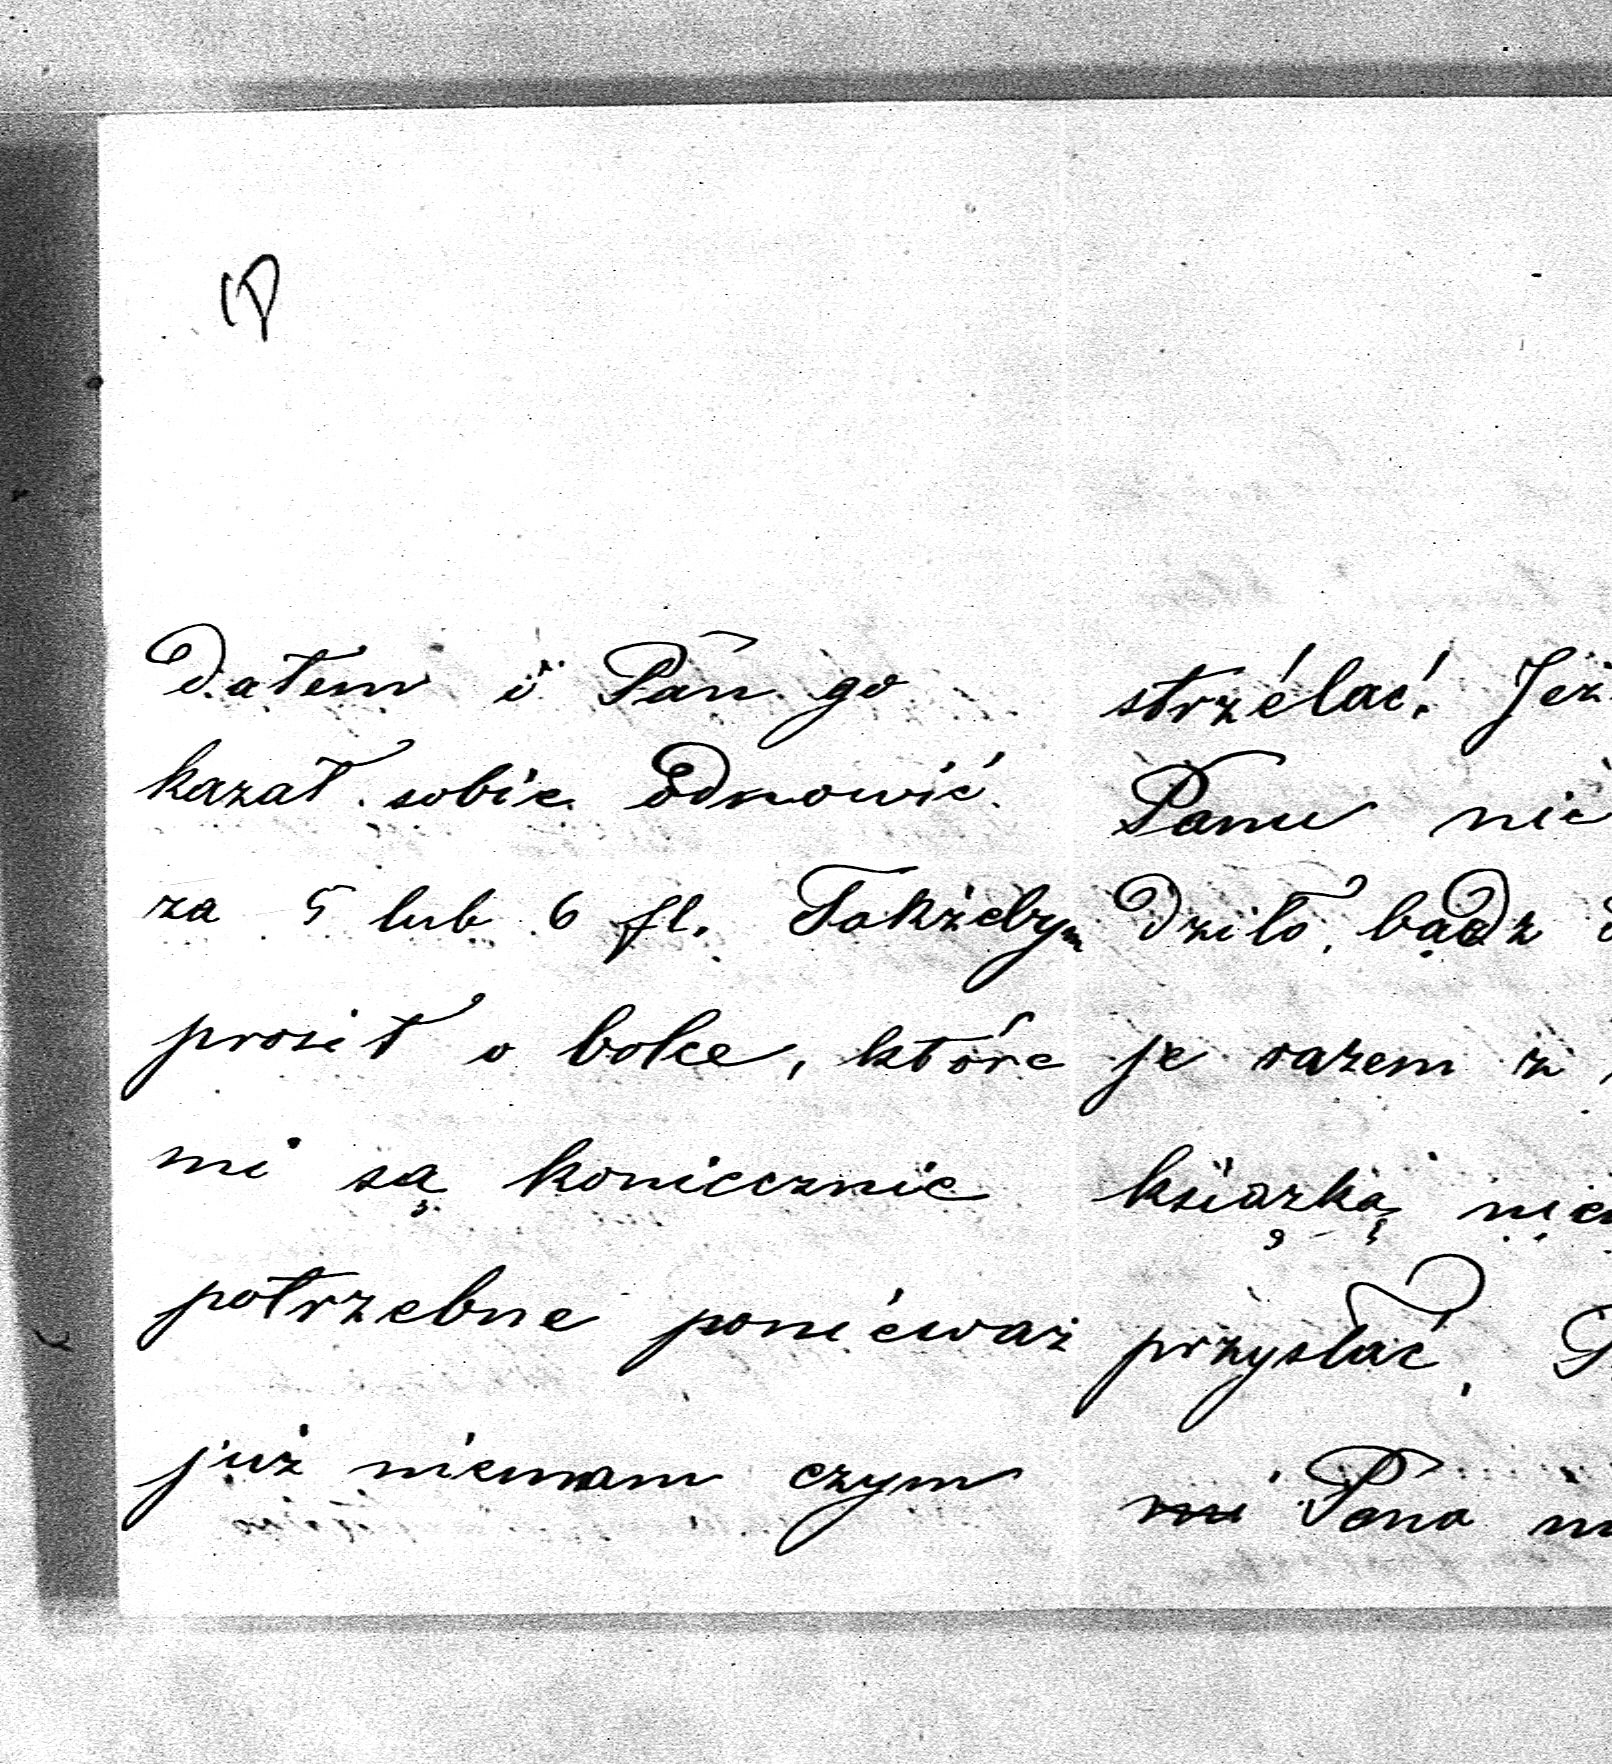 dałem i Pan go
kazał sobie odnowić
za 5 lub 6 fl. Takżebym
prosił o bolce, które
mi są koniecznie
potrzebne poniéważ
już niemam czym
strzélać. Jeż
Panu nie
dziło, bądź
je razem z
książką
przysłać.
mi Pana